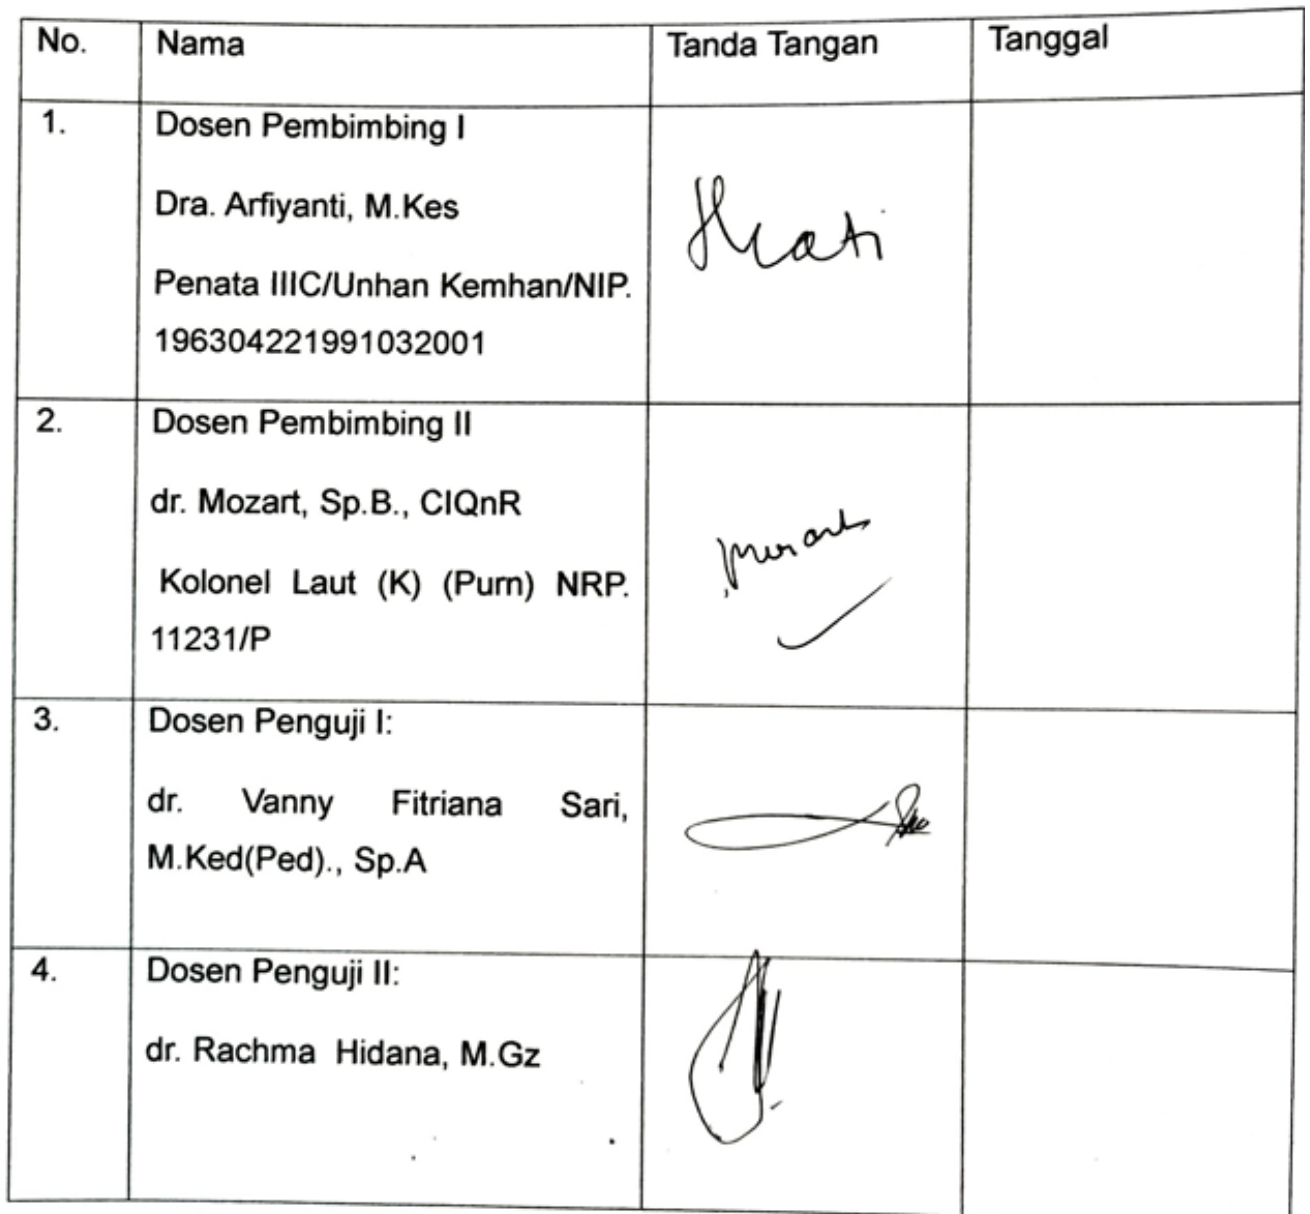 No. Nama Tanda Tangan Tanggal
1. Dosen Pembimbing I
Dra. Arfiyanti, M.Kes
Penata IIIC/Unhan Kemhan/NIP.
196304221991032001
2. Dosen Pembimbing II
dr. Mozart, Sp.B., CIQnR
Kolonel Laut (K) (Purn) NRP.
11231/P
3. Dosen Penguji I:
dr. Vanny Fitriana Sari,
M.Ked(Ped)., Sp.A
4. Dosen Penguji II:
dr. Rachma Hidana, M.Gz